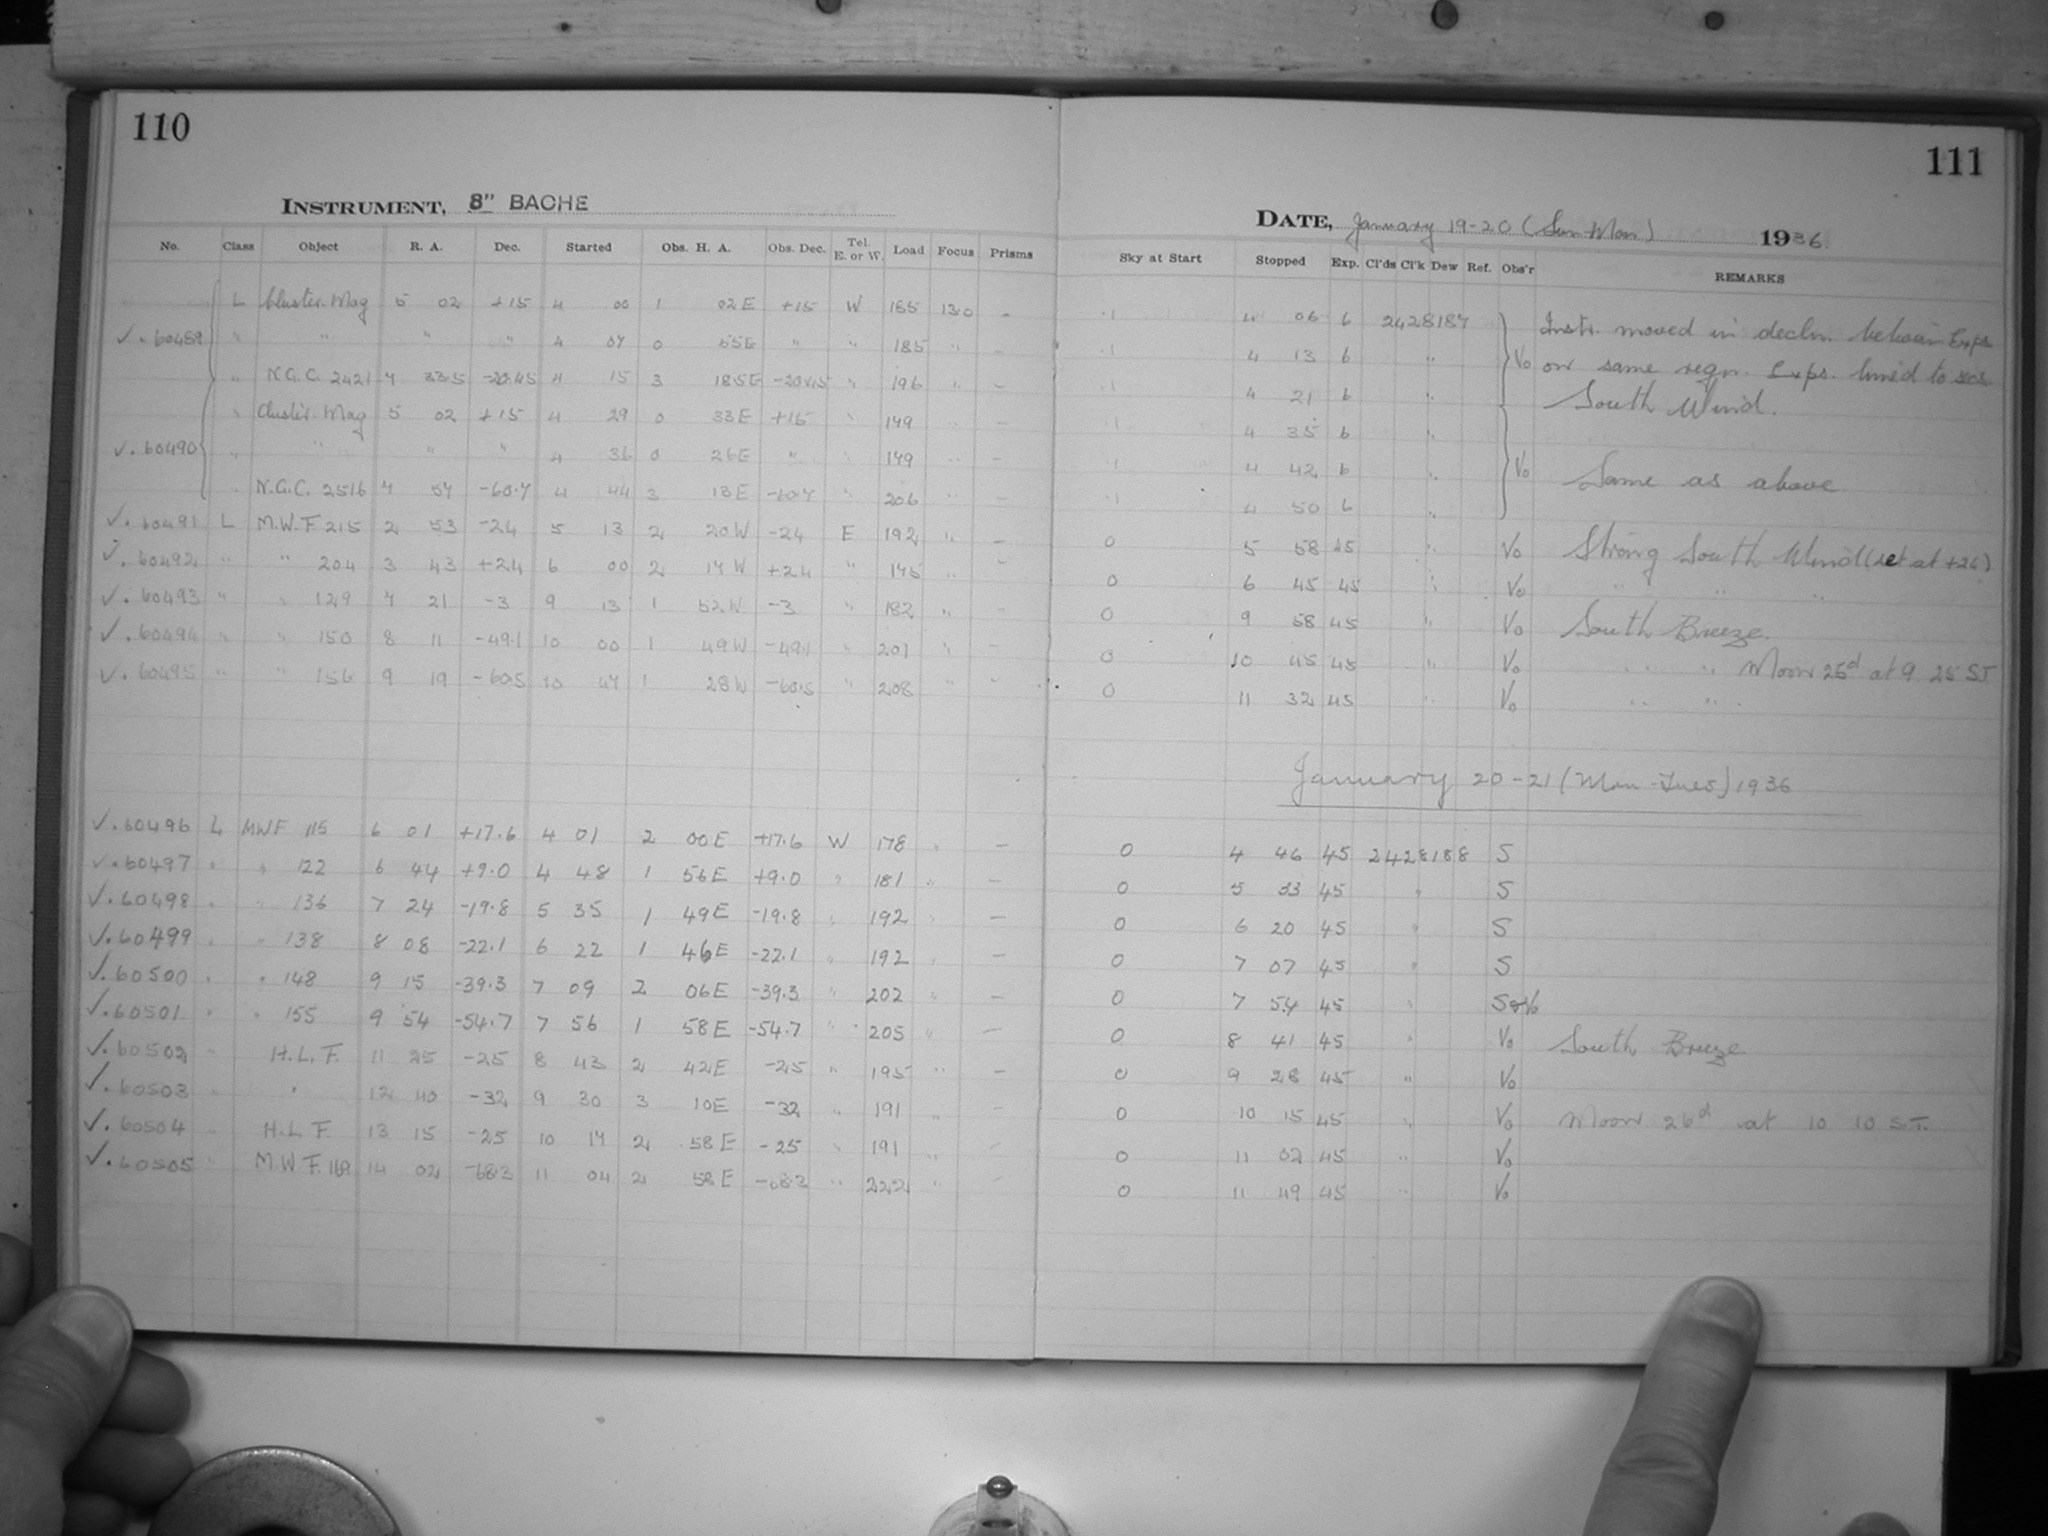 110
INSTRUMENT, 8" BACHE
No. Class Object R. A. Dec. Started Obs. H. A. Obs. Dec. Tel. E. or W. Load Focus Prisms
L Cluster. Mag 5 02 +15 4 00 1 02E +15 W 185 13.0 –
√. 60489 " " " " 4 07 0 55E " " 185 " –
" N.G.C. 2421 7 33.5 -20.45 4 15 3 18.5E -20.45 " 196 " –
" Cluster. Mag 5 02 +15 4 29 0 33E +15 " 179 " –
√. 60490 " " " " 4 36 0 26E " " 179 " –
" N.G.C. 2516 7 57 -60.7 4 44 3 13E -60.7 " 206 " –
√. 60491 L M.W.F. 215 2 53 -24 5 13 2 20W -24 E 192 " –
√. 60492 " " 204 3 43 +24 6 00 2 17W +24 " 175 " –
√. 60493 " " 129 7 21 -3 9 13 1 52W -3 " 182 " –
√. 60494 " " 150 8 11 -49.1 10 00 1 49W -49.1 " 201 " –
√. 60495 " " 156 9 19 -60.5 10 47 1 28W -60.5 " 208 " –
√. 60496 L MWF 115 6 01 +17.6 4 01 2 00E +17.6 W 178 " –
√. 60497 " " 122 6 44 +9.0 4 48 1 56E +9.0 " 181 " –
√. 60498 " " 136 7 24 -19.8 5 35 1 49E -19.8 " 192 " –
√. 60499 " " 138 8 08 -22.1 6 22 1 46E -22.1 " 192 " –
√. 60500 " " 148 9 15 -39.3 7 09 2 06E -39.3 " 202 " –
√. 60501 " " 155 9 54 -54.7 7 56 1 58E -54.7 " 205 " –
√. 60502 " H.L.F. 11 25 -25 8 43 2 42E -25 " 195 " –
√. 60503 " " 12 40 -32 9 30 3 10E -32 " 191 " –
√. 60504 " H.L.F. 13 15 -25 10 17 2 58E -25 " 191 " –
√. 60505 " M.W.F. 14 02 -68.3 11 04 2 58E -68.3 " 222 " –
111
DATE, January 19-20 (Sun-Mon) 1936.
Sky at Start Stopped Exp. Cl'ds Cl'k Dew Ref. Obs'r REMARKS
.1 4 06 6 2428187 Instr. moved in decln. between Exps
.1 4 13 6 " Vo on same regn. Exps. timed to secs.
.1 4 21 6 " South Wind.
.1 4 35 6 "
.1 4 42 6 " Vo Same as above
.1 4 50 6 "
0 5 58 45 " Vo Strong South Wind (set at +24)
0 6 45 45 " Vo " " "
0 9 58 45 " Vo South Breeze.
0 10 45 45 " Vo " " Moon 25d at 9 25 ST.
0 11 32 45 " Vo " "
January 20-21 (Mon-Tues) 1936
0 4 46 45 2428188 S
0 5 33 45 " S
0 6 20 45 " S
0 7 07 45 " S
0 7 54 45 " S&Vo
0 8 41 45 " Vo South Breeze
0 9 28 45 " Vo
0 10 15 45 " Vo Moon 26d at 10 10 S.T.
0 11 02 45 " Vo
0 11 49 45 " Vo